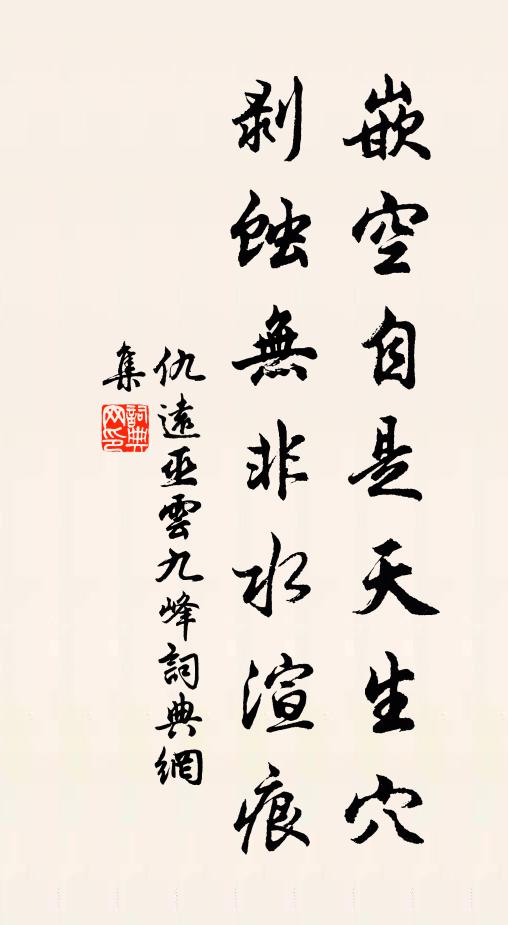 嵌空自是天生穴
剥蝕無非水渲痕
仇遠巫雲九峰詞典網
集
詞典
网印